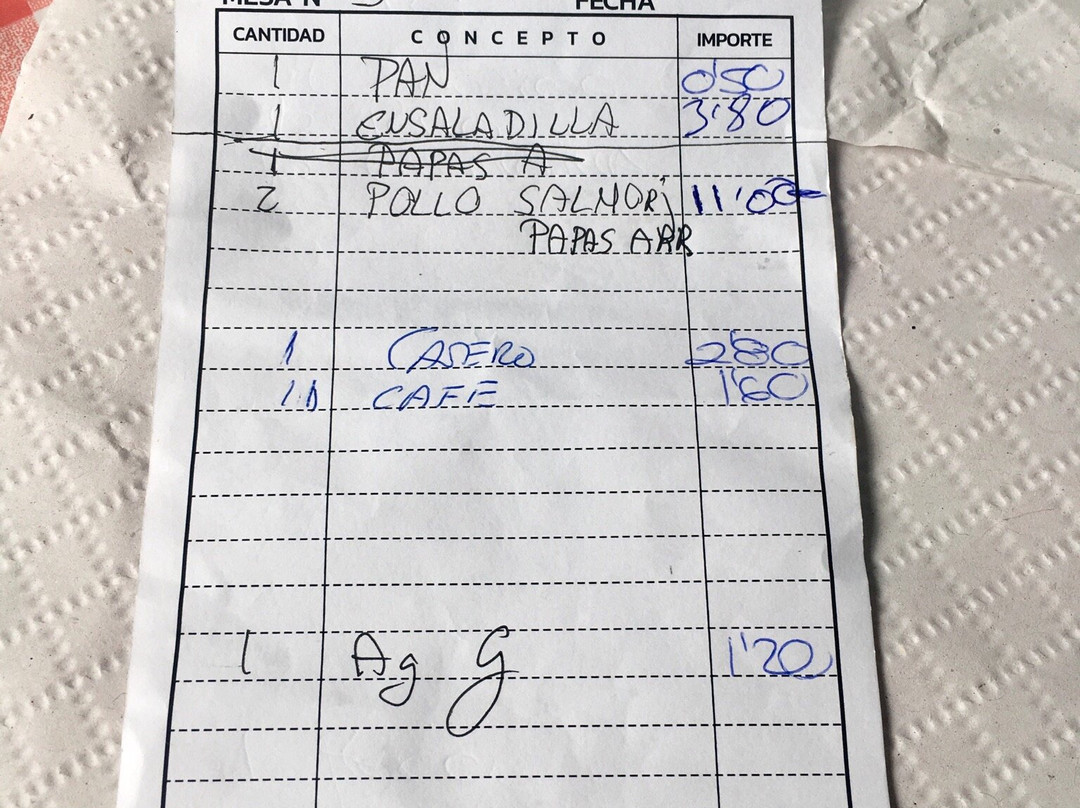 MESA Nº 5 FECHA
CANTIDAD CONCEPTO IMPORTE
1 PAN 0'50
1 ENSALADILLA 3'80
1 PAPAS A
2 POLLO SALMORJ 11'00
PAPAS ARR
1 CASERO 2'80
11 CAFE 1'60
1 Ag G 1'20